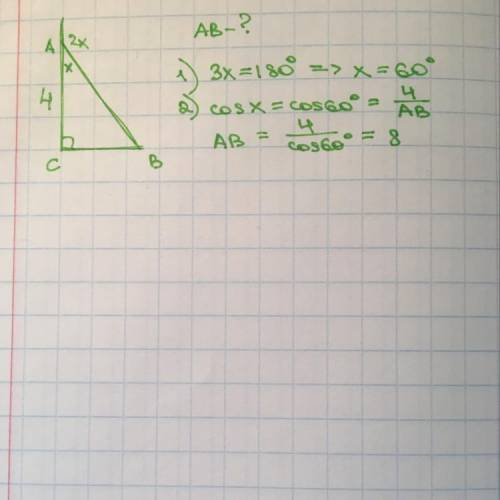 AB - ?
A 2x
x
4
C B
1) 3x = 180° => x = 60°
2) cosx = cos60° = 4/AB
AB = 4/cos60° = 8